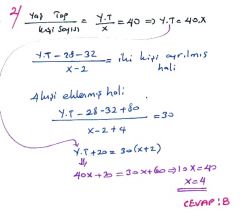 2) Yaş Top / Kişi Sayısı = Y.T / x = 40 ⇒ Y.T = 40.x
Y.T - 28 - 32 / x - 2 = iki kişi ayrılmış hali
4 kişi eklenmiş hali
Y.T - 28 - 32 + 80 / x - 2 + 4 = 30
Y.T + 20 = 30(x+2)
40x + 20 = 30x + 60 ⇒ 10x = 40
x = 4
CEVAP: B